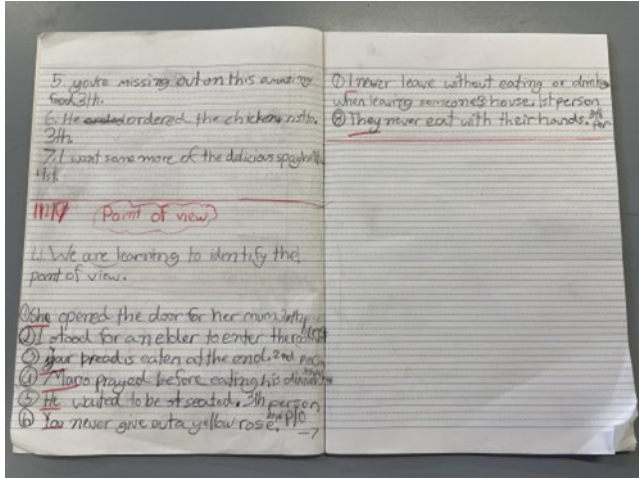 5. you're missing out on this amazing
food 3th.
6. He ordered the chicken
3th.
7. I want some more of the delicious
1st.
Point of view
L.I We are learning to identify the
point of view.
① She opened the door for her mum
② I stood for an elder to enter the
③ your bread is eaten at the end. 2nd
④ Mario prayed before eating his dinner
⑤ He waited to be seated. 3th person
⑥ You never give out a yellow rose.
⑦ I never leave without eating or
when leaving someone's house. 1st person
⑧ They never eat with their hands.